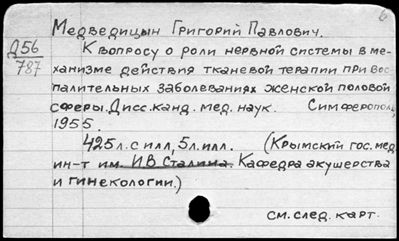 Медведицын Григорий Павлович.
Д56
787
К вопросу о роли нервной системы в ме-
ханизме действия тканевой терапии при вос-
палительных заболеваниях женской половой
сферы. Дисс. канд. мед. наук. Симферополь,
1955.
425л. с илл, 5л. илл. (Крымский гос. мед.
ин-т им. И В Сталина. Кафедра акушерства
и гинекологии.)
см. след. карт.